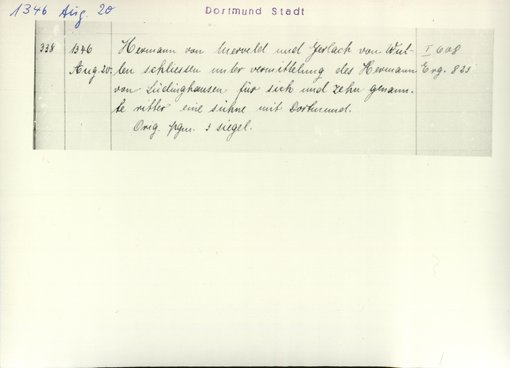 1346 Aug. 20
Dortmund Stadt
338 1346 Hermann von Merveld und Gerlach von Wul- I 608
Aug. 20. ten schliessen unter vermittelung des Hermann Erg. 821
von Lüdinghausen für sich und zehn genann-
te ritter eine sühne mit Dortmund.
Orig. pgm. 3 siegel.